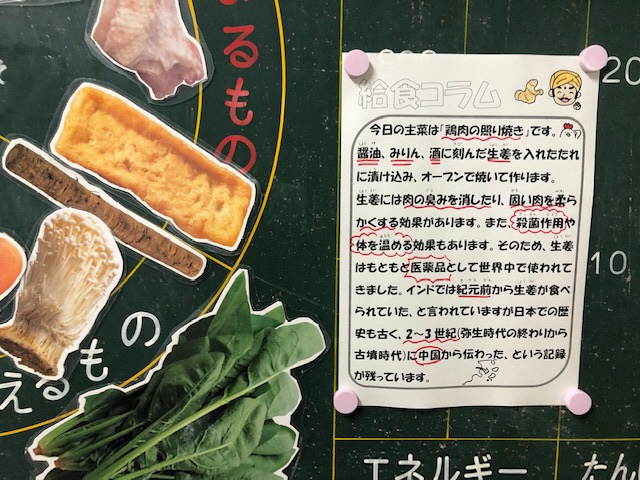 るもの
えるもの
給食コラム
今日の主菜は「鶏肉の照り焼き」です。
醤油、みりん、酒に刻んだ生姜を入れたたれ
に漬け込み、オーブンで焼いて作ります。
生姜には肉の臭みを消したり、固い肉を柔ら
かくする効果があります。また、殺菌作用や
体を温める効果もあります。そのため、生姜
はもともと医薬品として世界中で使われて
きました。インドでは紀元前から生姜が食べ
られていた、と言われていますが日本での歴
史も古く、2～3世紀(弥生時代の終わりから
古墳時代)に中国から伝わった、という記録
が残っています。
20
10
エネルギー
たん